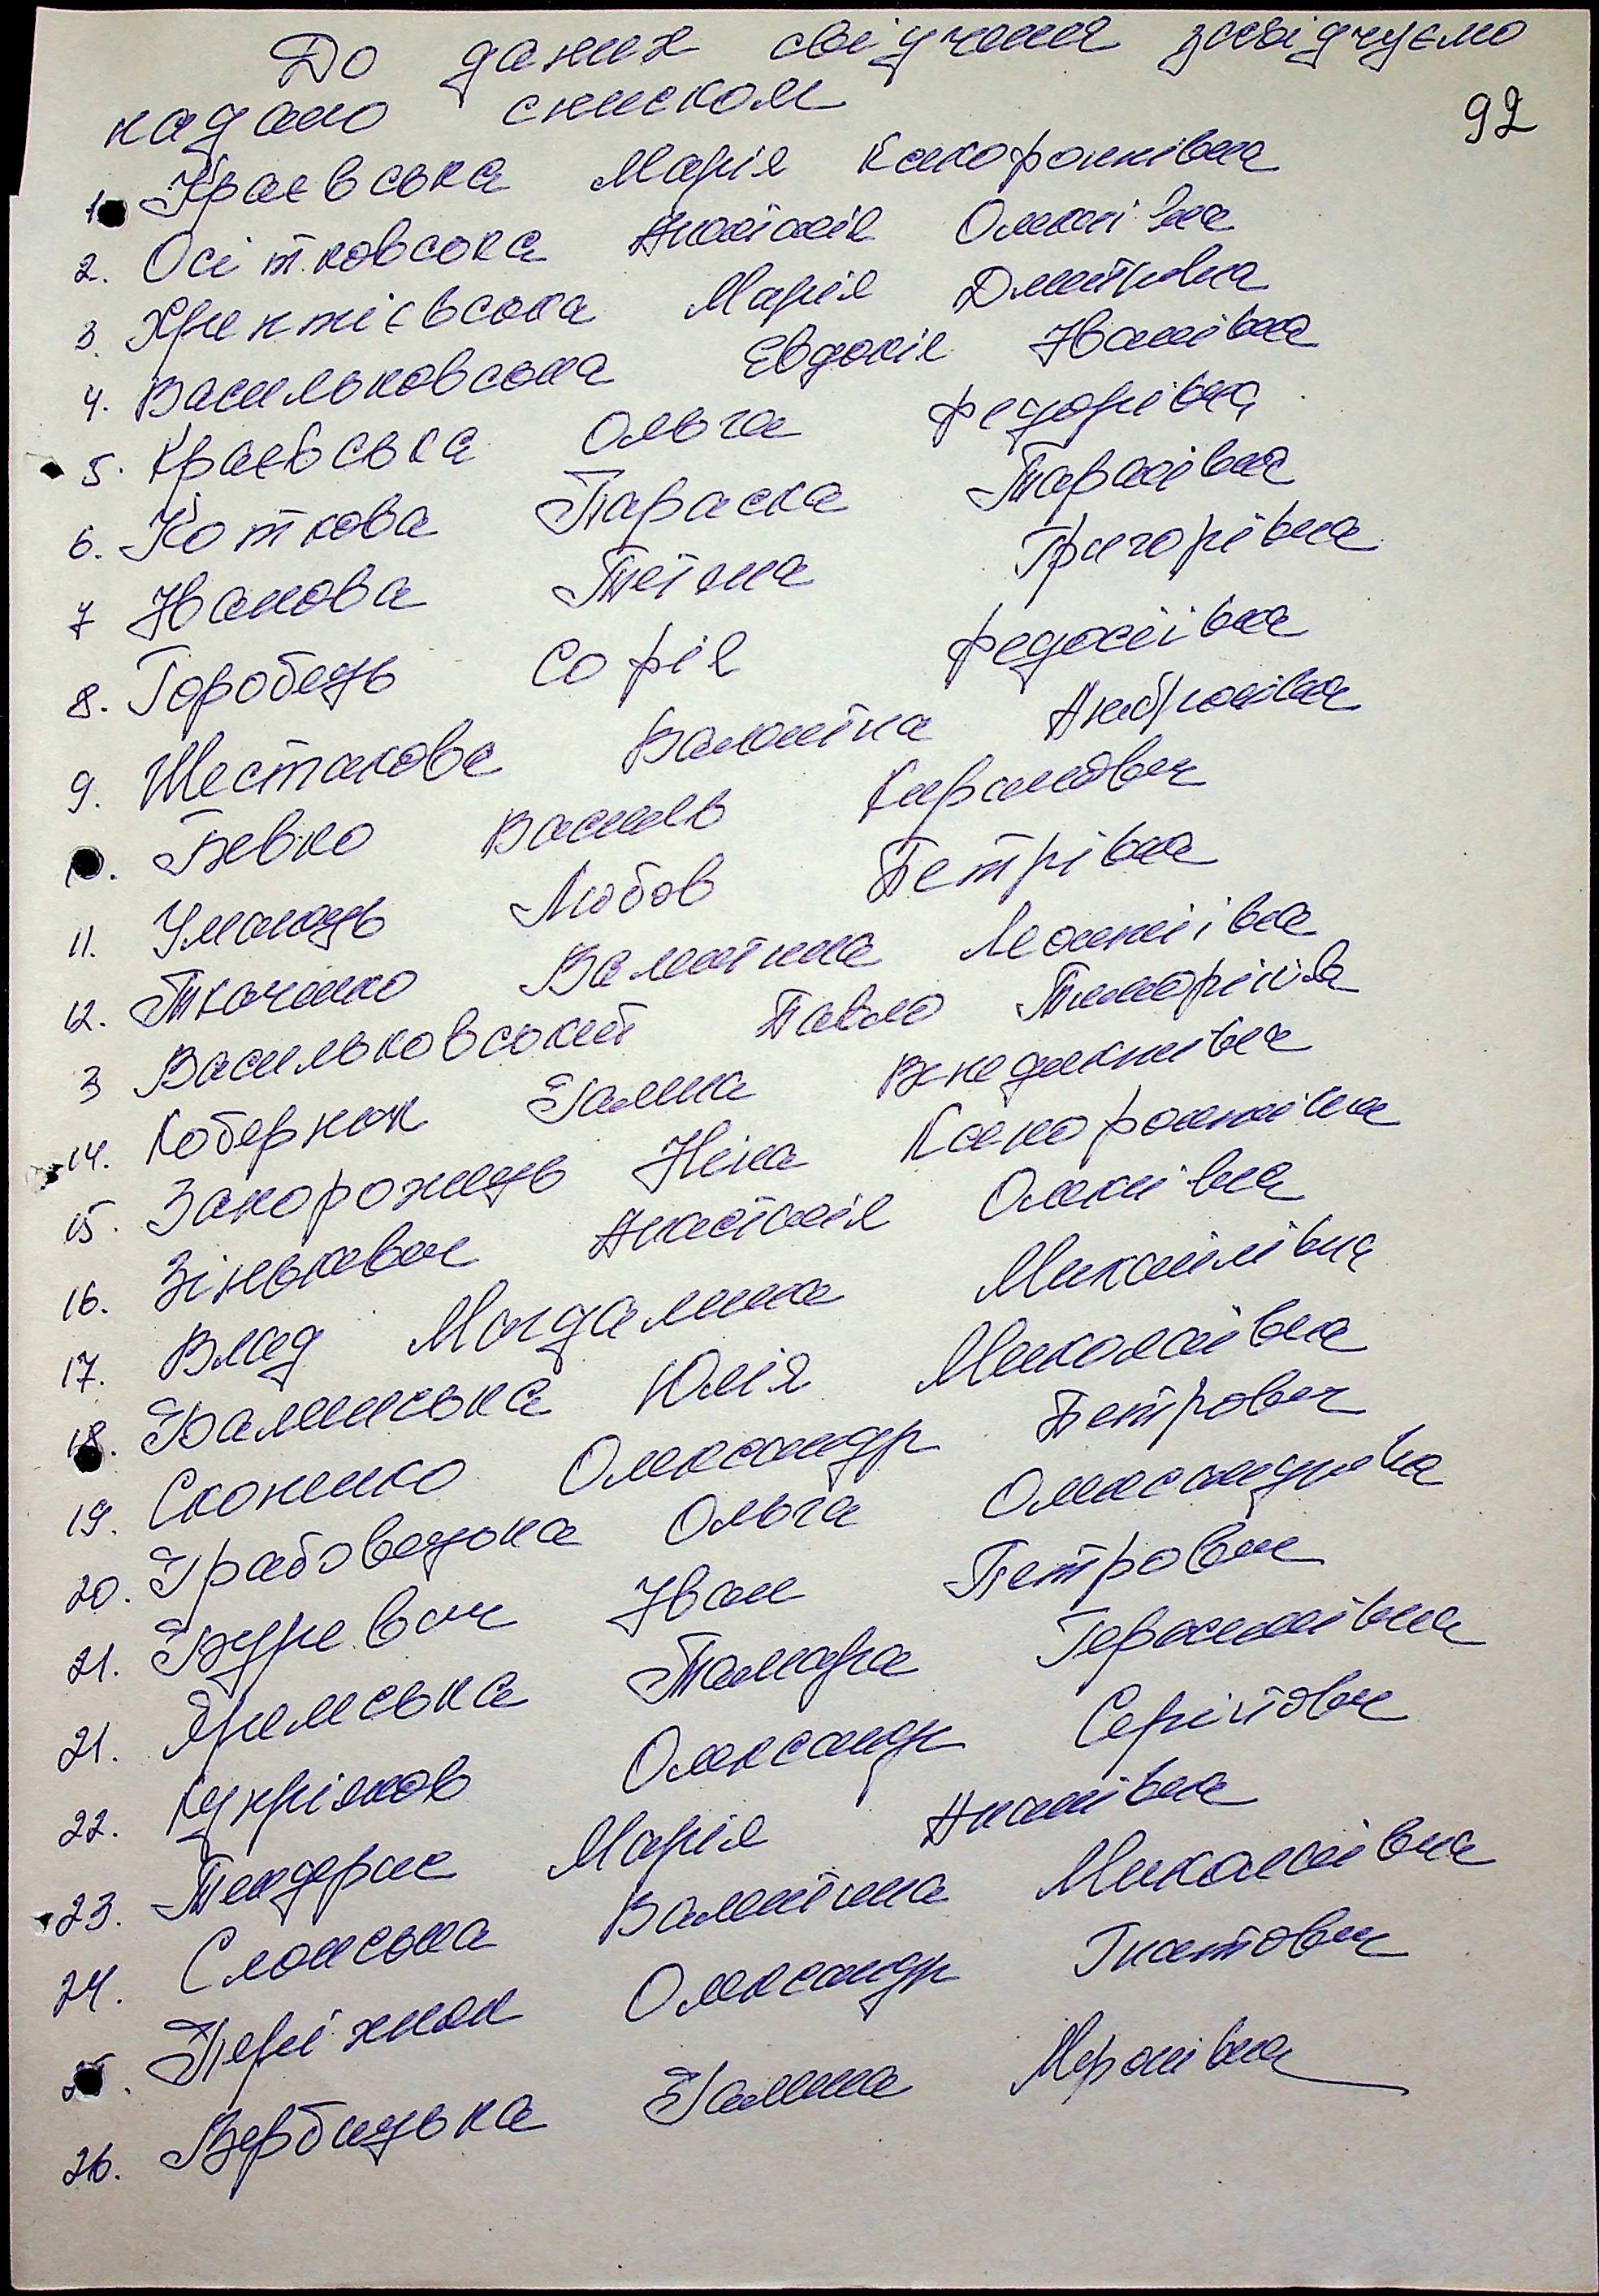 До даних свідчення засвідчуємо
92
надано списком
1. Краєвська Марія Ксенофонтівна
2. Осітковська Анастасія Олексіївна
3. Хрипкієвська Марія Дмитрівна
4. Васильковська Евдокія Іванівна
5. Краєвська Ольга Федорівна
6. Коткова Параска Тарасівна
7 Іванова Тетяна Григорівна
8. Горобець Софія Федосіївна
9. Шестакова Валентина Амбросівна
10. Бевко Василь
11. Уманець Любов Петрівна
12. Ткаченко Валентина Леонтіївна
3 Васильковський Павло
14. Коберник Галина Венедиктівна
15. Запорожець Ніна Ксенофонтівна
16. Зінькевич Анастасія Олексіївна
17. Влад Магдалина Михайлівна
18. Галинська Юлія Миколаївна
19. Скопенко Олександр Петрович
20. Грабовецька Ольга Олександрівна
21. Гуревич Іван Петрович
21. Яримська Тамара Герасимівна
22. Купріянов Олександр Сергійович
23. Тендерис Марія
24. Слонська Валентина Миколаївна
25. Олександр Гнатович
26. Вербицька Галина Миронівна